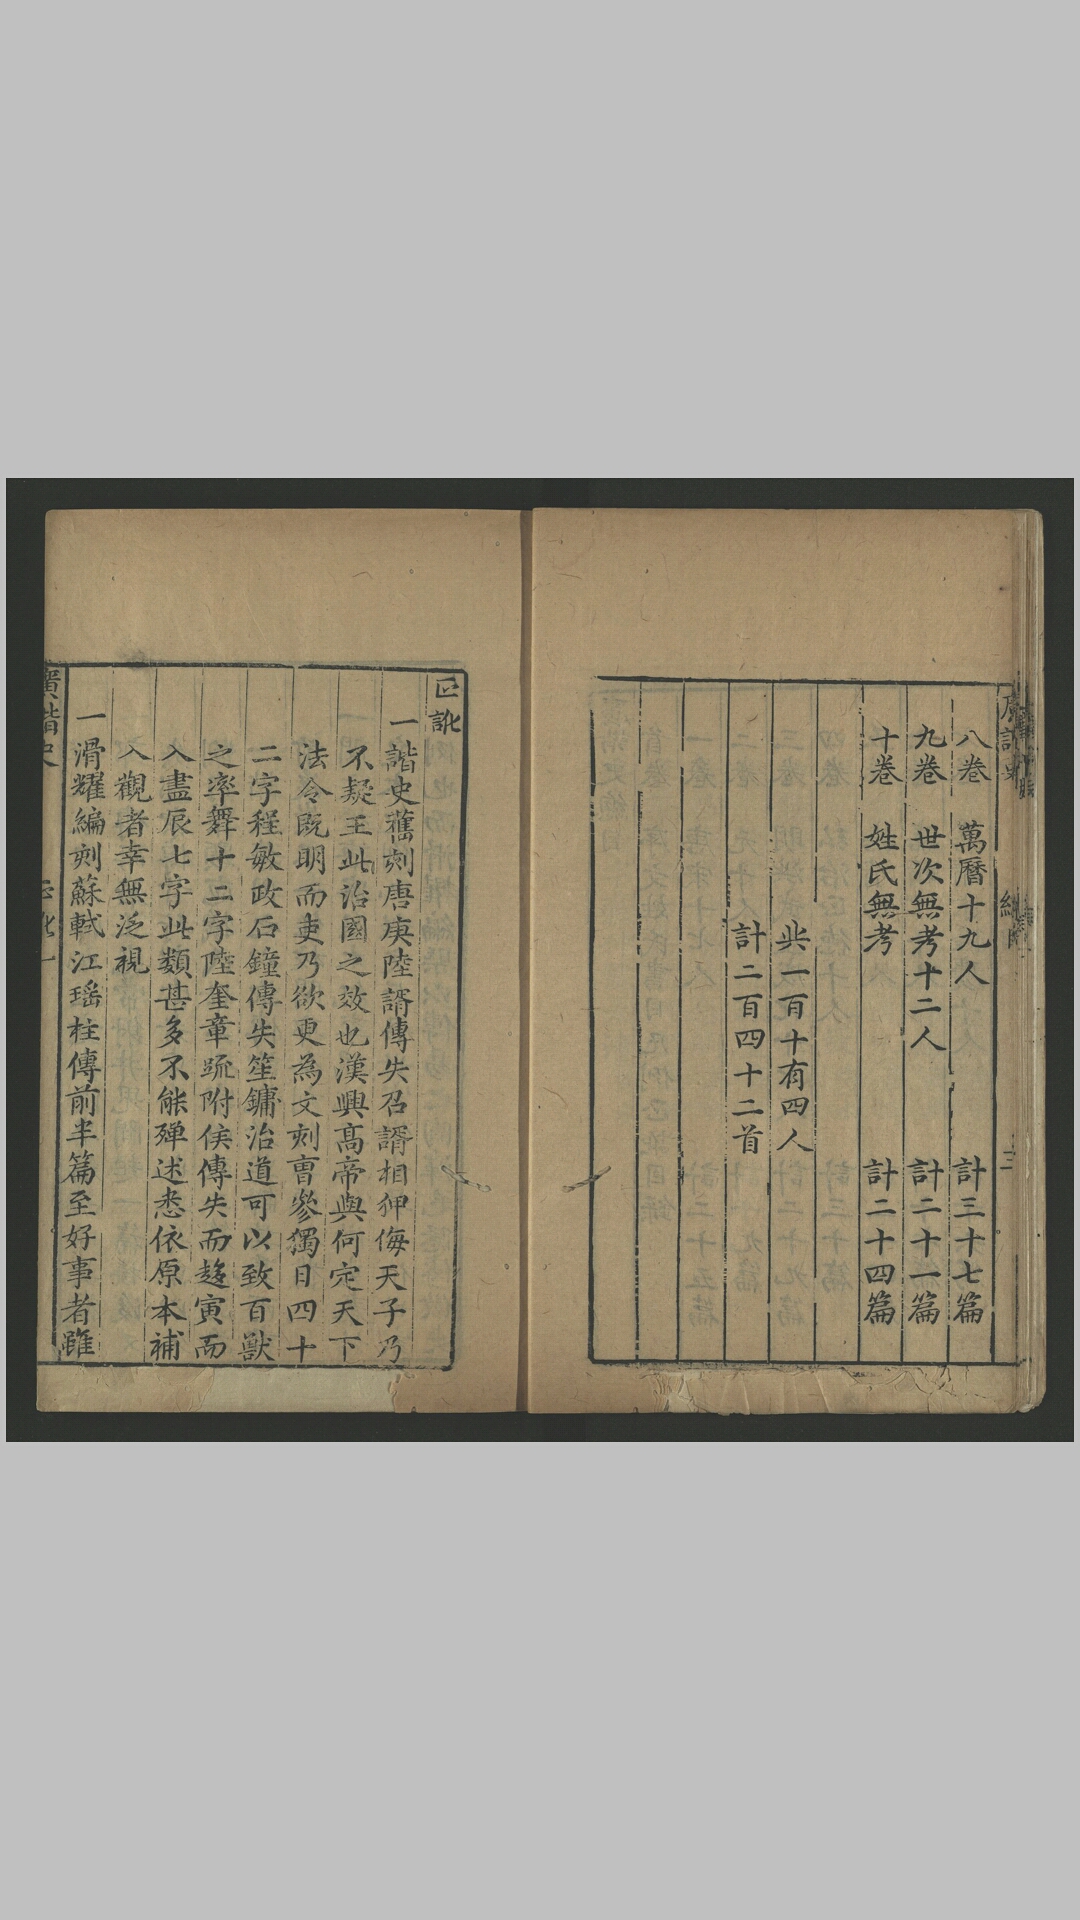 八卷 萬曆十九人 計三十七篇
九卷 世次無考十二人 計二十一篇
十卷 姓氏無考 計二十四篇
此一百十有四人
計二百四十二首
正訛
一諧史舊刻唐庚陸諝傳失召諝相狎侮天子乃
不疑王此治國之效也漢興高帝與何定天下
法令既明而吏乃欲更為文刻曺參獨日四十
二字程敏政石鐘傳失笙鏞治道可以致百獸
之率舞十二字陸奎章䟽附侯傳失而趍寅而
入盡辰七字此類甚多不能殫述悉依原本補
入觀者幸無泛視
一滑耀編刻蘇軾江瑶柱傳前半篇至好事者雖
廣諧史
正訛 一